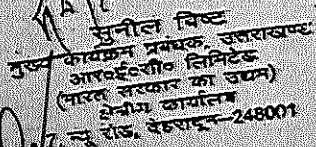 सुनील बिष्ट
मुख्य कार्यक्रम प्रबंधक, उत्तराखण्ड
आर०ई०सी० लिमिटेड
(भारत सरकार का उद्यम)
क्षेत्रीय कार्यालय
7, न्यू रोड, देहरादून-248001